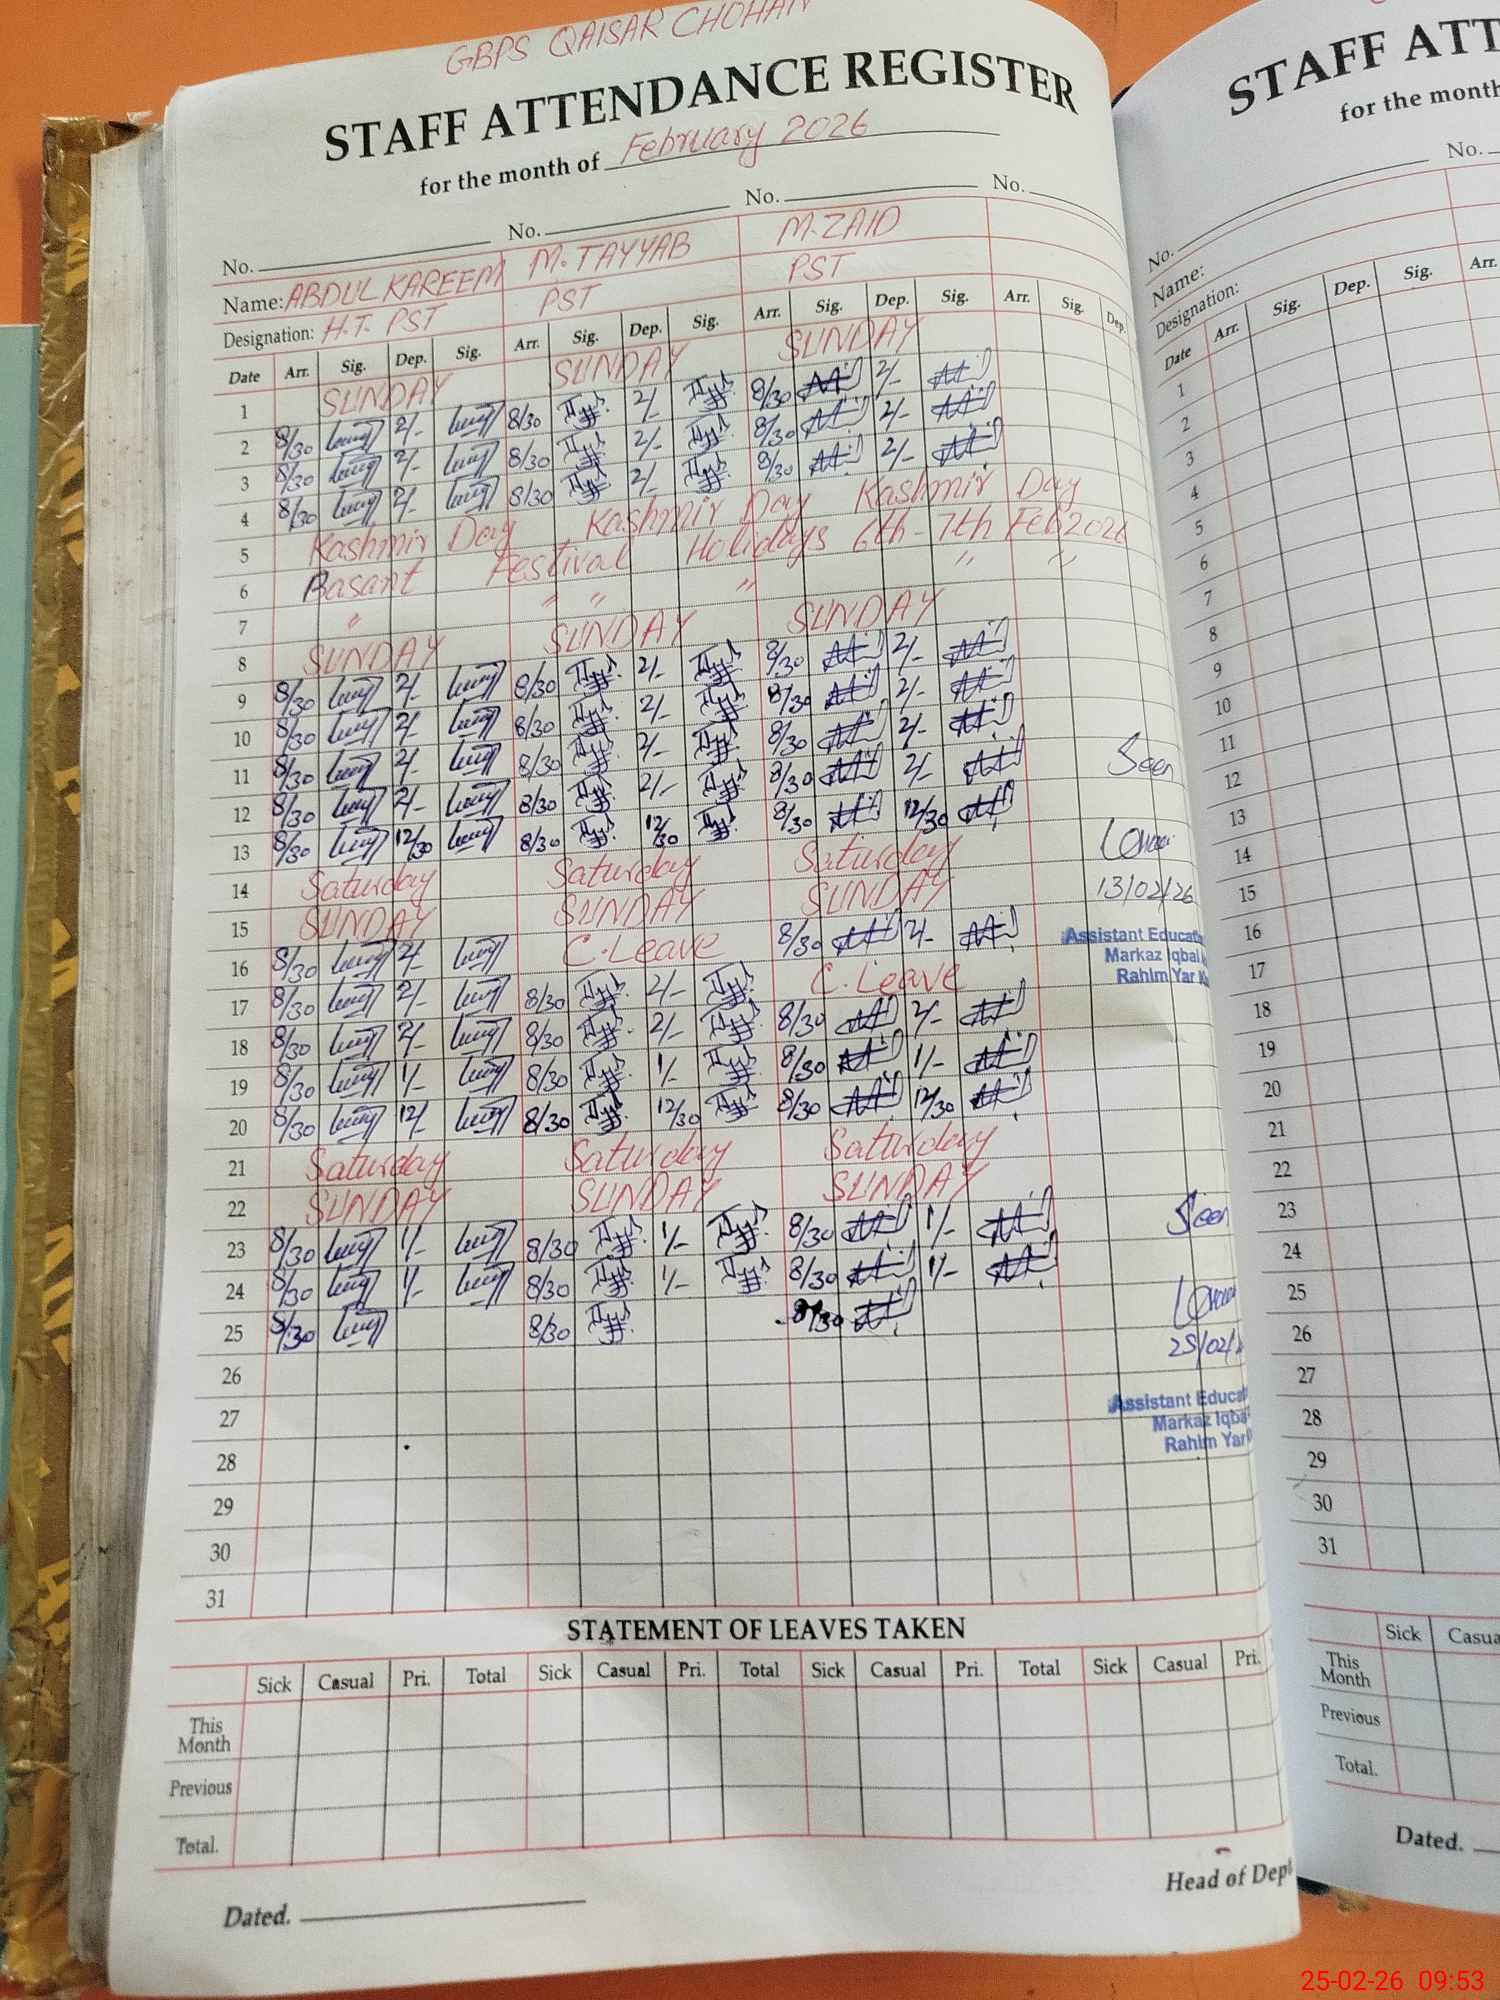 GBPS QAISAR CHOHAN
STAFF ATTENDANCE REGISTER
for the month of February 2026
No. No. No. No.
Name: ABDUL KAREEM M. TAYYAB M. ZAID
Designation: H.T. PST PST PST
Date Arr. Sig. Dep. Sig. Arr. Sig. Dep. Sig. Arr. Sig. Dep. Sig. Arr. Sig. Dep.
1 SUNDAY SUNDAY SUNDAY
2 8/30 2/- 8/30 2/ 8/30 2/-
3 8/30 2/- 8/30 2/- 8/30 2/-
4 8/30 2/- 8/30 2/ 8/30 2/-
5 Kashmir Day Kashmir Day Kashmir Day
6 Basant Festival Holidays 6th - 7th Feb 2026
7 " " " " " "
8 SUNDAY SUNDAY SUNDAY
9 8/30 2/- 8/30 2/- 8/30 2/-
10 8/30 2/- 8/30 2/- 8/30 2/-
11 8/30 2/- 8/30 2/- 8/30 2/-
12 8/30 2/- 8/30 2/- 8/30 2/-
Seen
13 8/30 12/30 8/30 12/30 8/30 12/30
14 Saturday Saturday Saturday
13/02/26
15 SUNDAY SUNDAY SUNDAY
Assistant Educati
Markaz Iqbal
Rahim Yar
16 8/30 2/- C. Leave 8/30 2/-
17 8/30 2/- 8/30 2/- C. Leave
18 8/30 2/- 8/30 2/- 8/30 2/-
19 8/30 1/- 8/30 1/- 8/30 1/-
20 8/30 12/- 8/30 12/30 8/30 12/30
21 Saturday Saturday Saturday
22 SUNDAY SUNDAY SUNDAY
23 8/30 1/- 8/30 1/- 8/30 1/-
Seen
24 8/30 1/- 8/30 1/- 8/30 1/-
25 8/30 8/30 8/30
25/02/
26
27
Assistant Educa
Markaz Iqba
Rahim Yar
28
29
30
31
STATEMENT OF LEAVES TAKEN
Sick Casual Pri. Total Sick Casual Pri. Total Sick Casual Pri. Total Sick Casual Pri.
This Month
Previous
Total.
Dated.
Head of Dept
STAFF ATT
for the month
No. No.
Name:
Designation:
Date Arr. Sig. Dep. Sig. Arr.
1
2
3
4
5
6
7
8
9
10
11
12
13
14
15
16
17
18
19
20
21
22
23
24
25
26
27
28
29
30
31
Sick Casua
This Month
Previous
Total.
Dated.
25-02-26 09:53